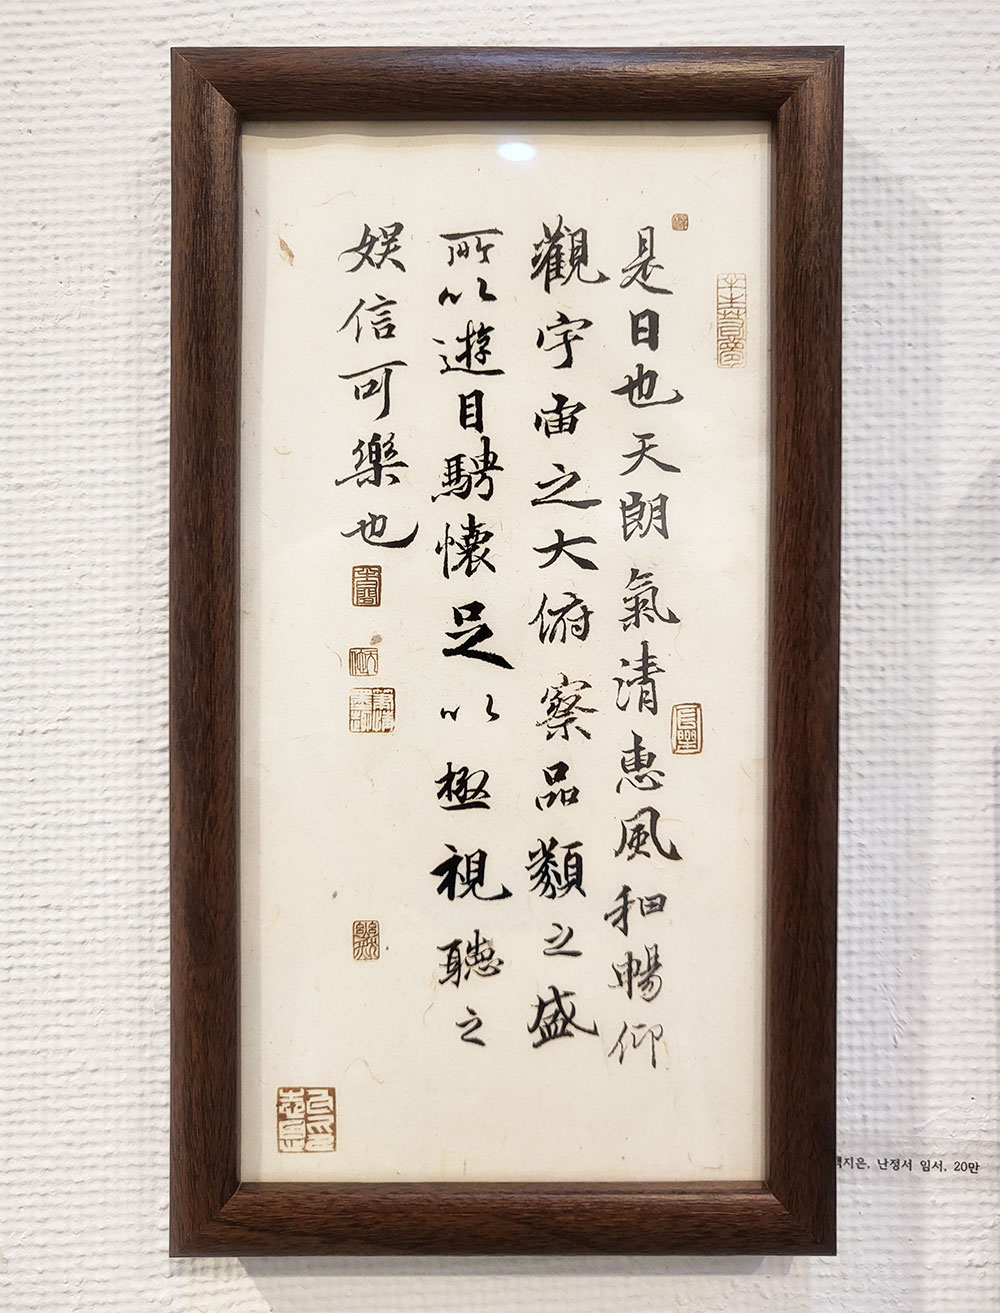 是日也天朗氣清惠風和暢仰
觀宇宙之大俯察品類之盛
所以遊目騁懷足以極視聽之
娱信可樂也
지은, 난정서 임서. 20만